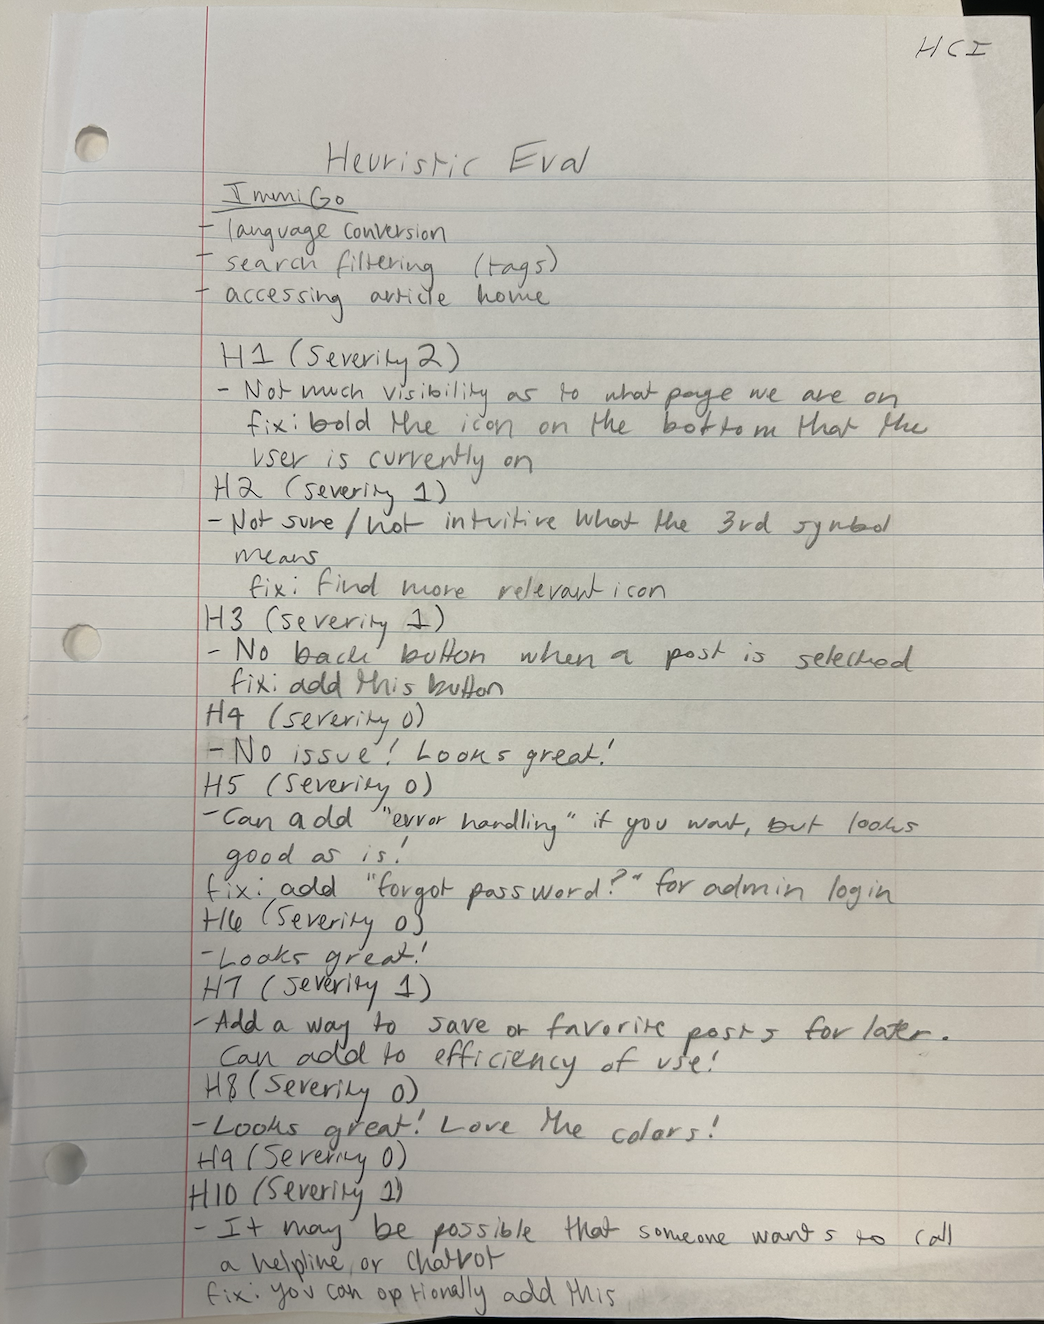 HCI
Heuristic Eval
ImmiGo
- language conversion
- search filtering (tags)
- accessing article home
H1 (Severity 2)
- Not much visibility as to what page we are on
fix: bold the icon on the bottom that the
user is currently on
H2 (severity 1)
- Not sure / not intuitive what the 3rd symbol
means
fix: find more relevant icon
H3 (severity 1)
- No back button when a post is selected
fix: add this button
H4 (severity 0)
- No issue! Looks great!
H5 (severity 0)
- Can add "error handling" if you want, but looks
good as is!
fix: add "forgot password?" for admin login
H6 (Severity 0)
- Looks great!
H7 (severity 1)
- Add a way to save or favorite posts for later.
Can add to efficiency of use!
H8 (Severity 0)
- Looks great! Love the colors!
H9 (Severity 0)
H10 (Severity 1)
- It may be possible that someone wants to call
a helpline or chatbot
fix: you can optionally add this